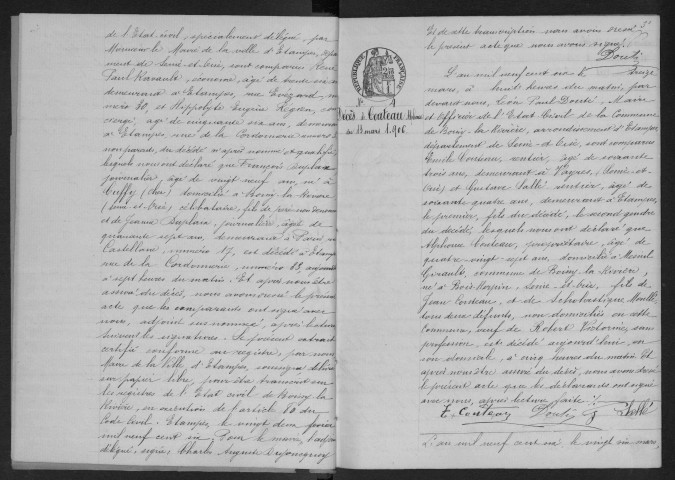 de l'Etat civil, spécialement de signé, par
Monsieur le Maire de la ville d'Etampes, dépar
tement de Seine-et-Oise, sont comparus
Paul Ravault, économe, âgé de trente six ans
demeurant à Etampes, rue
méro 30, et Hippolyte Eugène
âgé de cinquante six ans, demeurant
à Etampes rue de la Cordonnerie
non parents, du décédé ci après nommé et qualifié
lesquels nous ont déclaré que François Duplaix
journalier, âgé de vingt neuf ans, né à
Cuffy (Cher) domicilié à Boissy la Rivière
(Seine-et-Oise) célibataire, fils de père non dénommé
et de Jeanne Duplaix, journalière, âgée de
quarante sept ans, demeurant à Paris
numéro 17, est décédé à Etampes
rue de la Cordonnerie, numéro 88, aujourd'hui
à sept heures du matin. Et après nous être
assuré du décès, nous avons dressé le présent
acte que les comparants ont signé avec
nous, adjoint susnommé, après lecture
suivent les signatures. Le présent extrait
certifié conforme au registre, par nous
Maire de la Ville d'Etampes, soussigné délivré
sur papier libre, pour être transcrit sur
les registres de l'Etat civil de Boissy la
Rivière, en exécution de l'article 80 du
Code Civil. Etampes, le vingt deux février
mil neuf cent six. Pour le maire, l'adjoint
délégué, signé, Charles Auguste
Et de cette transcription nous avons dressé
le présent acte que nous avons signé.
Douté
REPUBLIQUE FRANÇAISE
N° 4
Décès de Couteau Alphonse
du 13 mars 1906
L'an mil neuf cent six le treize
mars, à huit heures du matin, par
devant nous, Léon Paul Douté, Maire
et Officier de l'Etat Civil de la Commune
de Boissy la Rivière, arrondissement d'Etampes
département de Seine-et-Oise, sont comparus
Emile Couteau, rentier, âgé de soixante
trois ans, demeurant à Vayres (Seine-et-
Oise) et Gustave Sallé, rentier, âgé de
soixante quatre ans, demeurant à Etampes,
le premier, fils du décédé, le second gendre
du décédé, lesquels nous ont déclaré que
Alphonse Couteau, propriétaire, âgé de
quatre vingt sept ans, domicilié à Mesnil
Girault, commune de Boissy la Rivière,
né à Bois-Herpin, Seine-et-Oise, fils de
Jean Couteau, et de Scholastique
tous deux défunts, non domiciliés en cette
Commune, veuf de Robert Victorine, sans
profession, est décédé aujourd'hui, en
son domicile, à cinq heures du matin. Et
après nous être assuré du décès, nous avons dressé
le présent acte que les déclarants ont signé
avec nous, après lecture faite.
E. Couteau Douté G. Sallé
L'an mil neuf cent six, le vingt six mars,